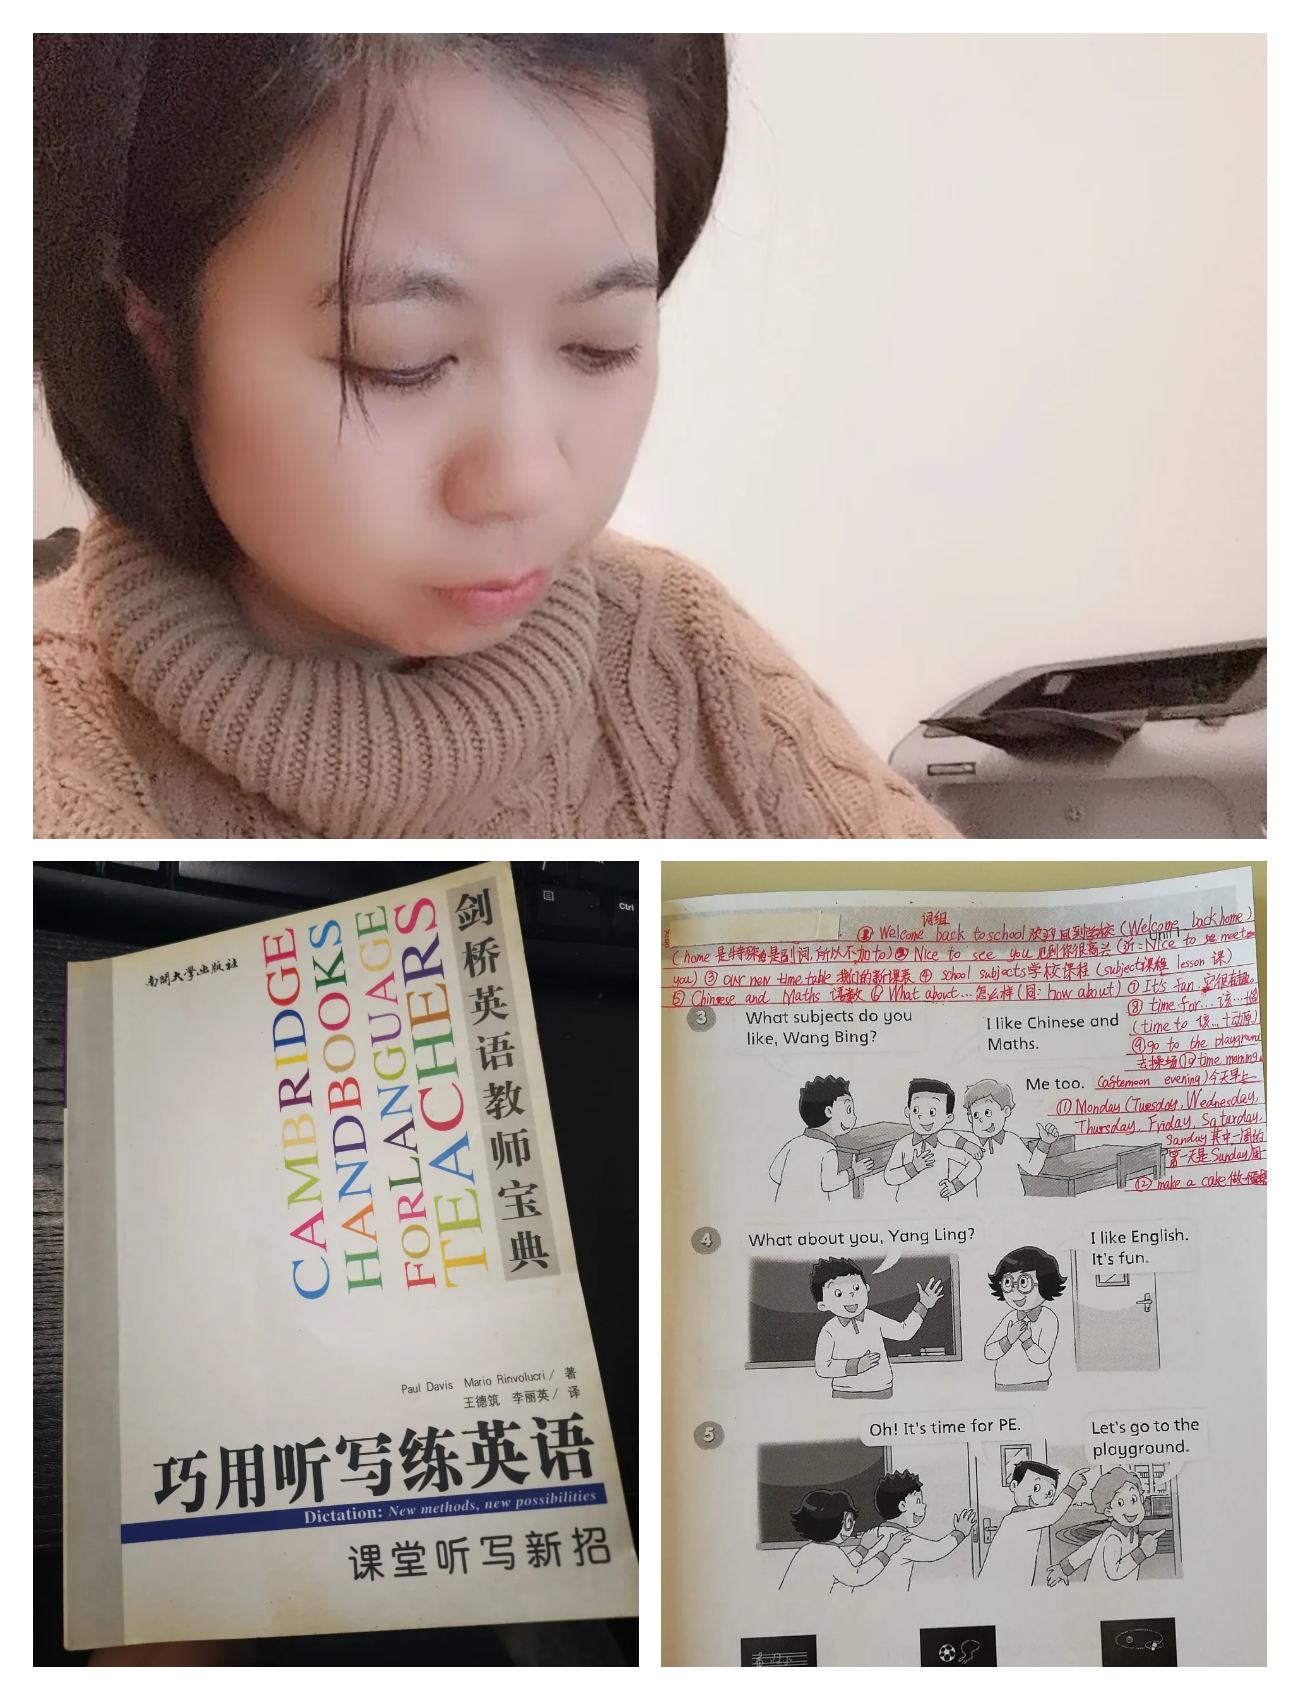 Ctrl
南開大學出版社
剑桥英语教师宝典
CAMBRIDGE
HANDBOOKS
FOR LANGUAGE
TEACHERS
Paul Davis Mario Rinvolucri / 著
王德筑 李丽英 / 译
巧用听写练英语
Dictation: New methods, new possibilities
课堂听写新招
词组
① Welcome back to school 欢迎回到学校 (Welcome back home)
(home 是特殊 是副词, 所以不加 to) ② Nice to see you 见到你很高兴 (近: Nice to meet
you) ③ our new timetable 我们的新课表 ④ school subjects 学校课程 (subject 课程 lesson 课)
⑤ Chinese and Maths 语数 ⑥ What about... 怎么样 (同: how about) ⑦ It's fun. 它很有趣。
⑧ time for... 该...
(time to 该...+动原)
⑨ go to the playground
去操场 ⑩ morning
(afternoon evening) 今天早上
⑪ Monday (Tuesday, Wednesday,
Thursday, Friday, Saturday,
Sunday 其中一周的
第一天是 Sunday
⑫ make a cake 做
3
What subjects do you
like, Wang Bing?
I like Chinese and
Maths.
Me too.
4
What about you, Yang Ling?
I like English.
It's fun.
5
Oh! It's time for PE.
Let's go to the
playground.